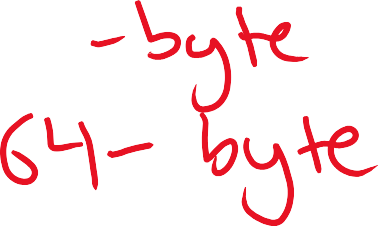 -byte
64- byte